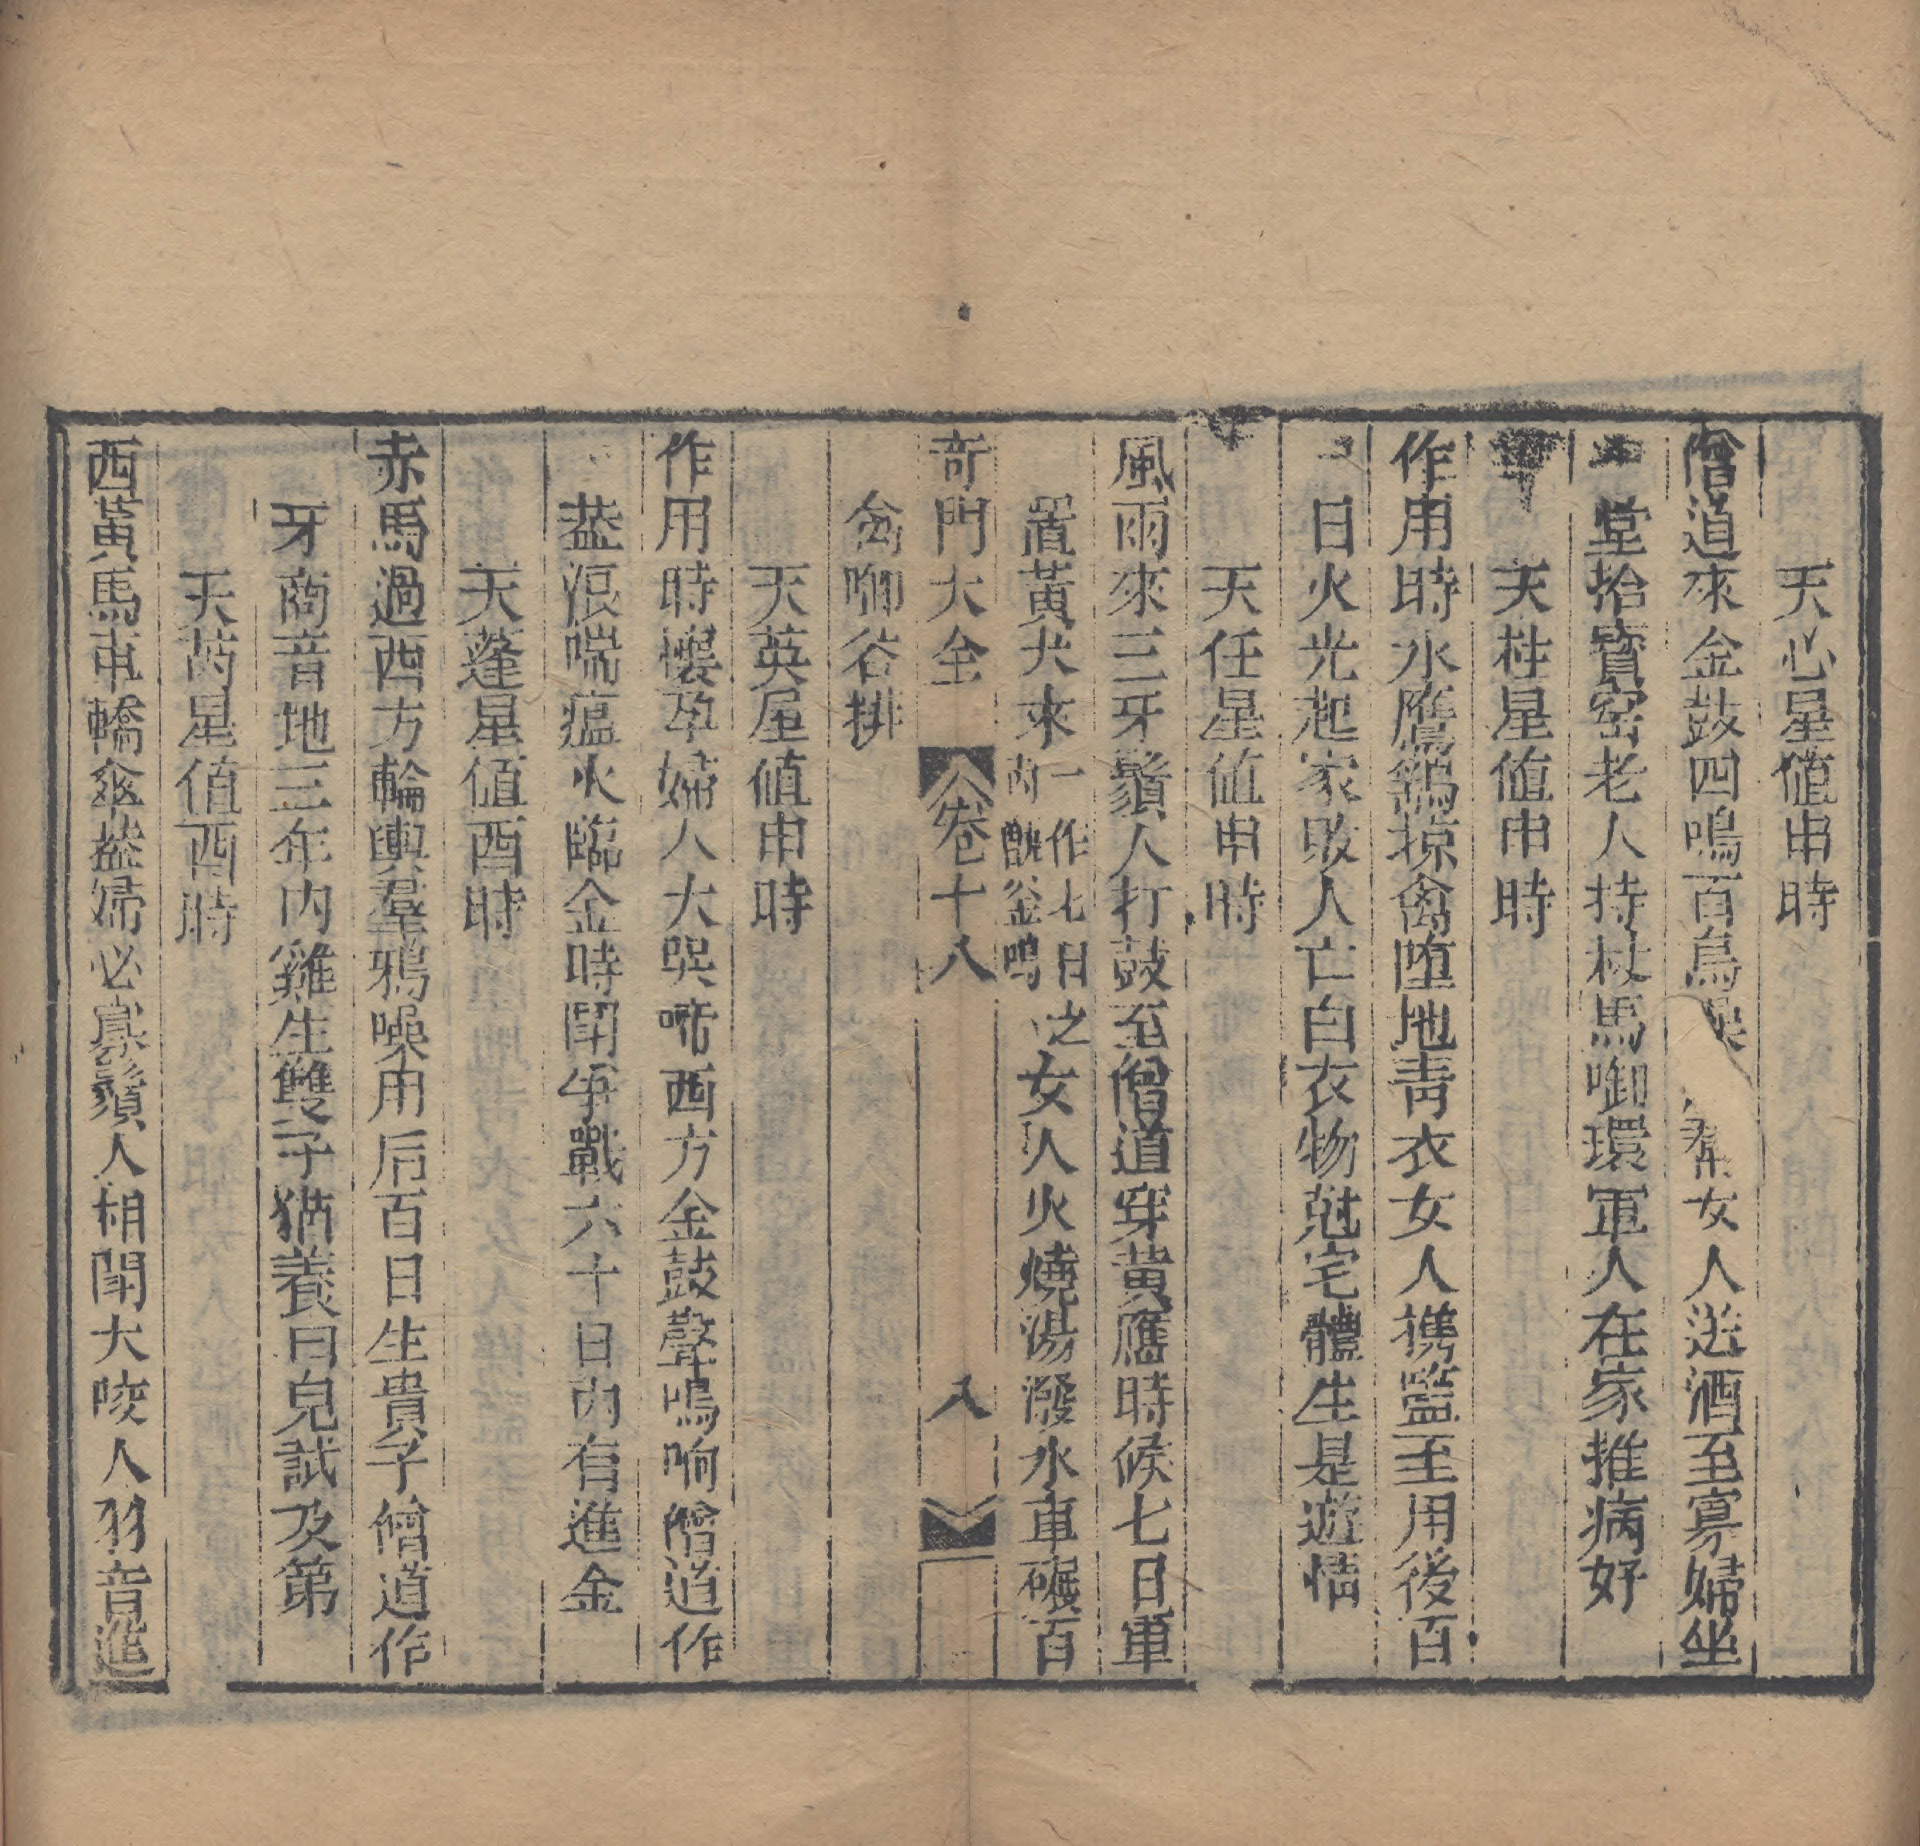 天心星値申時
僧道來金鼓四鳴百鳥羣女人送酒至寡婦坐
堂拾寶窑老人持杖馬啣環軍人在家推病好
天柱星値申時
作用時水鷹鷂掠禽堕地靑衣女人携籃至用後百
日火光起家敗人亡白衣物尅宅體生是遊情
天任星値申時
風雨來三牙鬚人打鼓至僧道穿黃應時候七日軍
置黃犬來一作七日之内醜釜鳴女人火燒湯潑水車碾百
奇門大全 卷十八 八
啣谷排
天英星値申時
作用時懷孕婦人大哭啼西方金鼓聲鳴响僧道作
葢浪喘瘟火臨金時鬪爭戰六十日内有進金
天蓬星値酉時
赤馬過西方輪輿羣鴉噪用后百日生貴子僧道作
牙商音地三年内雞生雙子猫養曰皃試及第
天芮星値酉時
西黃馬車轎傘葢婦必寡鬚人相鬪犬咬人羽音進